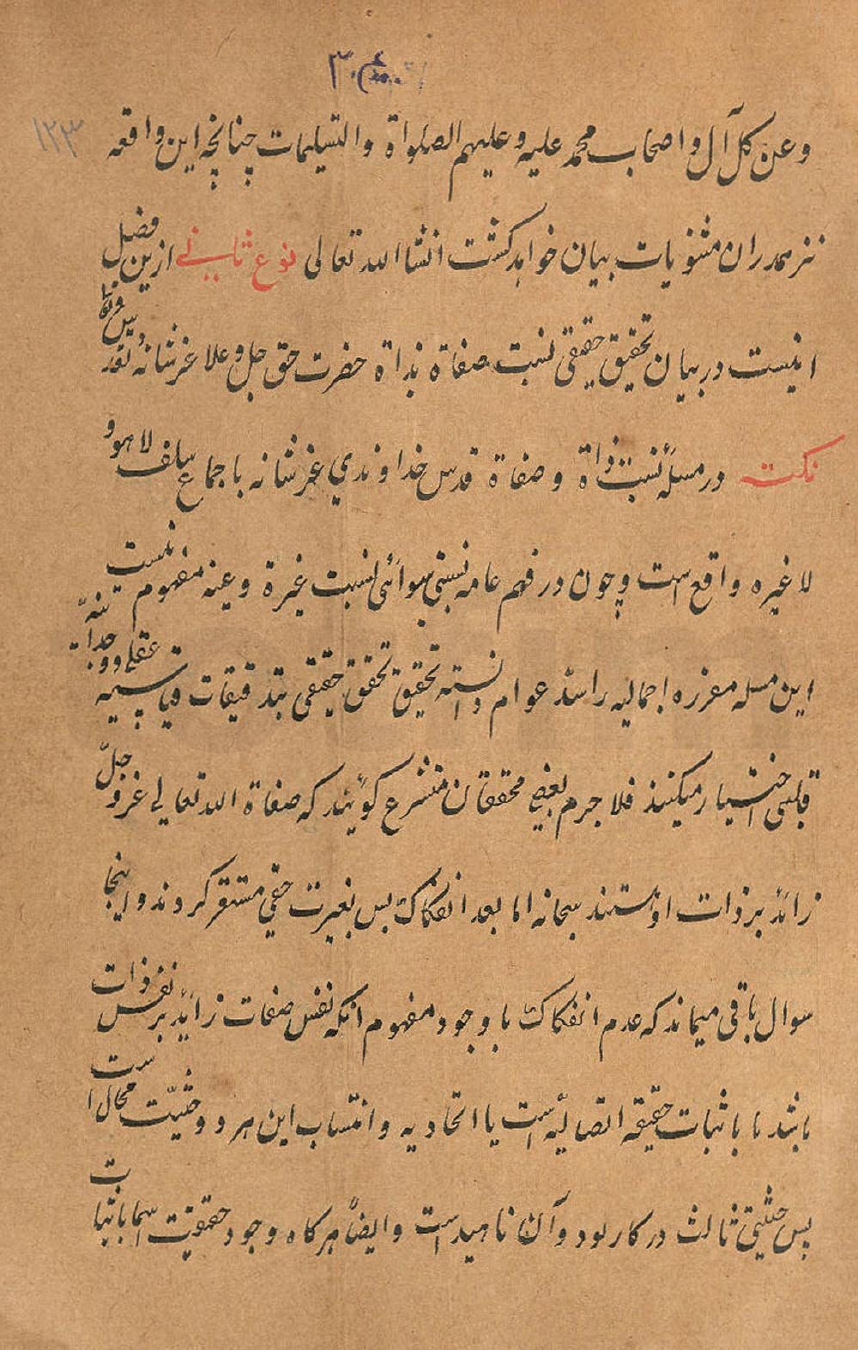 ۱۲۳
وعن کل آل و اصحاب محمد علیه و علیهم الصلواة والتسلیمات چنانچه این واقعه
نیز همدران مثنویات بیان خواهد گشت انشاالله تعالی نوع ثانی ازین فصل
اینست در بیان تحقیق حقیقی نسبت صفاة بذاة حضرت حق جل وعلا عز شانه
نکته در مسئله نسبت ذاة و صفاة قدس خداوندی عز شانه باجماع سلف لا هو و
لا غیره واقع است و چون در فهم عامه نسبتی سوائی نسبت غیرة و عینه مفهوم نیست
این مسله مقرره اجمالیه را سد عوام دانسته تحقیق حقیقی بتدقیقات قیاسیه عقلی و وجدانیه
قلبی اختیار میکنند فلاجرم بعضی محققان متشرع کویند که صفاة الله تعالی عز و جلّ
زائد بر ذات او هستند سبحانه اما بعد انفکاک پس بغیرت مستقر کردند و اینجا
سوال باقی میماند که عدم انفکاک با وجود مفهوم انکه نفس صفات زائد بر نفس ذات
باشد با باثبات حقیقه اتصالیه است یا اتحادیه و انتساب این هر دو حیثیّت محال است
پس حیثیتی ثالث درکار بود و آن ناپیداست وایضاً هرکاه وجود حقیقت اسما باثبات